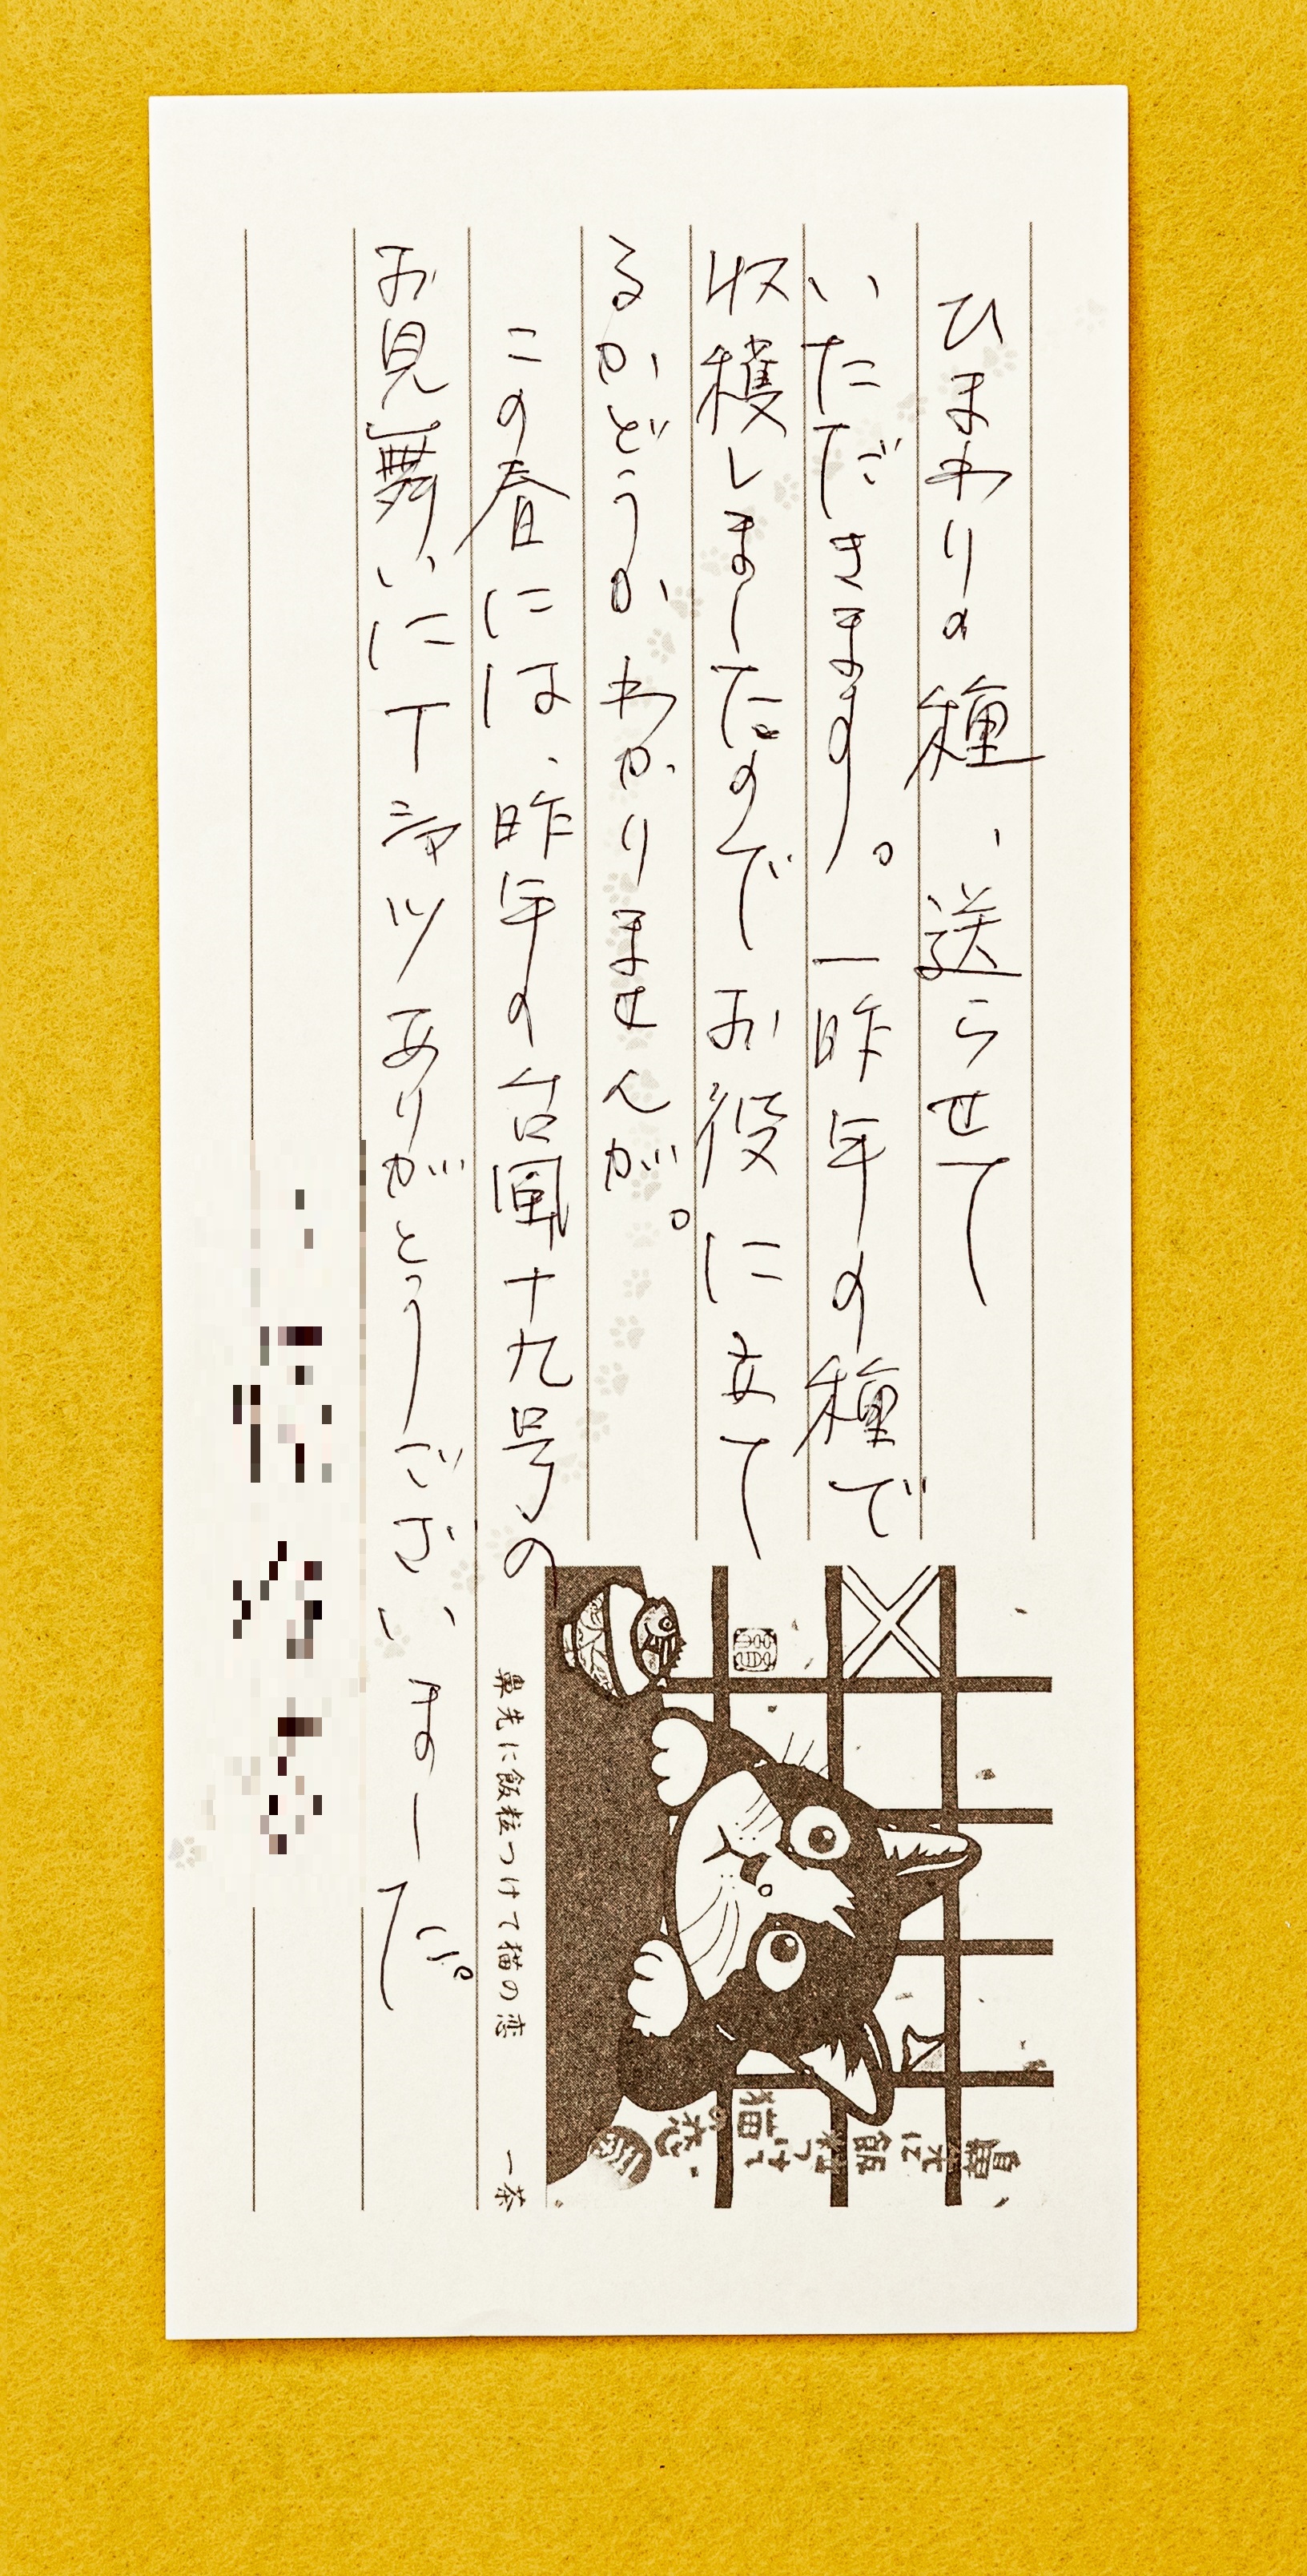 ひまわりの種、送らせて
いただきます。一昨年の種で
収穫しましたのでお役に立て
るかどうかわかりませんが。
この春には、昨年の台風十九号の
お見舞いにTシャツありがとうございました。
鼻先に飯粒つけて猫の恋　一茶
鼻
先に
飯
粒つ
けて
猫
の恋